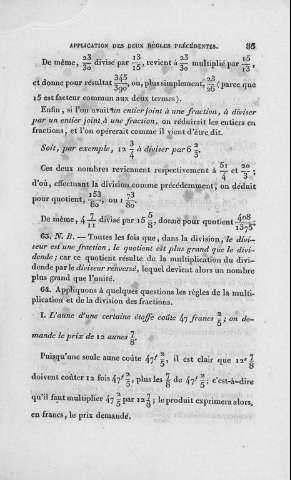 APPLICATION DES DEUX RÈGLES PRÉCÉDENTES. 85
De même, 23/30 divisé par 13/15, revient à 23/30 multiplié par 15/13,
et donne pour résultat 345/390, ou, plus simplement, 23/26 (parce que
15 est facteur commun aux deux termes).
Enfin, si l'on avait un entier joint à une fraction, à diviser
par un entier joint à une fraction, on réduirait les entiers en
fractions, et l'on opérerait comme il vient d'être dit.
Soit, par exemple, 12 3/4 à diviser par 6 2/3.
Ces deux nombres reviennent respectivement à 51/4 et 20/3;
d'où, effectuant la division comme précédemment, on déduit
pour quotient, 153/80, ou 1 73/80.
De même, 4 7/11 divisé par 15 5/8, donne pour quotient 408/1375.
63. N. B. — Toutes les fois que, dans la division, le divi-
seur est une fraction, le quotient est plus grand que le divi-
dende; car ce quotient résulte de la multiplication du divi-
dende par le diviseur renversé, lequel devient alors un nombre
plus grand que l'unité.
64. Appliquons à quelques questions les règles de la multi-
plication et de la division des fractions.
I. L'aune d'une certaine étoffe coûte 47 francs 2/5; on de-
mande le prix de 12 aunes 7/8.
Puisqu'une seule aune coûte 47f 2/5, il est clair que 12a 7/8
doivent coûter 12 fois 47f 2/5, plus les 7/8 de 47f 2/5; c'est-à-dire
qu'il faut multiplier 47 2/5 par 12 7/8; le produit exprimera alors,
en francs, le prix demandé.